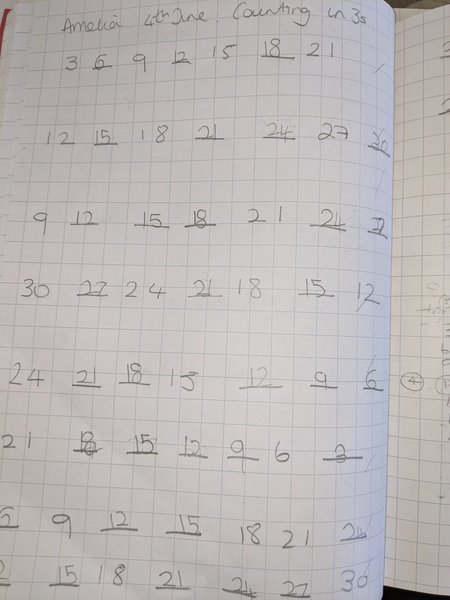 Amelia 4th June Counting in 3s
3 6 9 12 15 18 21
12 15 18 21 24 27 30
9 12 15 18 21 24 27
30 27 24 21 18 15 12
24 21 18 15 12 9 6
21 18 15 12 9 6 3
6 9 12 15 18 21 24
15 18 21 24 27 30
4